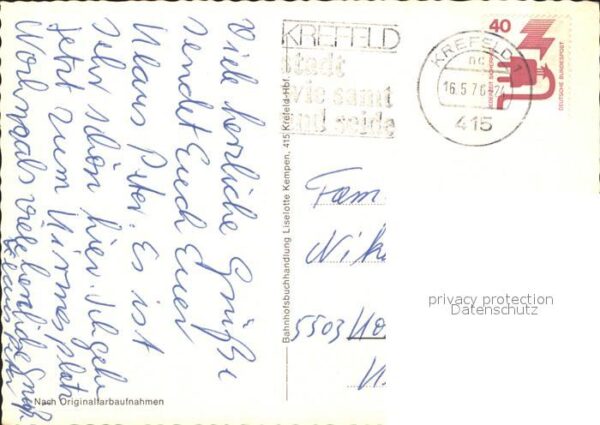 Viele herzliche Grüße
sendet Euch Euer
Klaus Peter. Es ist
sehr schön hier. Ich gehe
jetzt zum Kirmesplatz
Nochmals viele herzliche Grüße
Klaus Peter
Nach Originalfarbaufnahmen
Bahnhofsbuchhandlung Liselotte Kempen, 415 Krefeld-Hbf.
KREFELD
stadt
wie samt
und seide
KREFELD 1
16.5.76-24
415
40
JEDERZEIT SICHERHEIT
DEUTSCHE BUNDESPOST
Fam
Nik
5503 Ko
privacy protection
Datenschutz